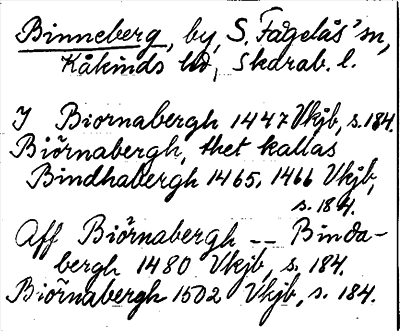 Binneberg, by, S. Fågelås' sn,
Kåkinds hd, Skarab. l.
I Biornabergh 1447 Vkjb, s. 184.
Biörnabergh, thet kallas
Bindhabergh 1465, 1466 Vkjb,
s. 184.
Aff Biörnabergh -- Binda-
bergh 1480 Vkjb, s. 184.
Biörnabergh 1502 Vkjb, s. 184.